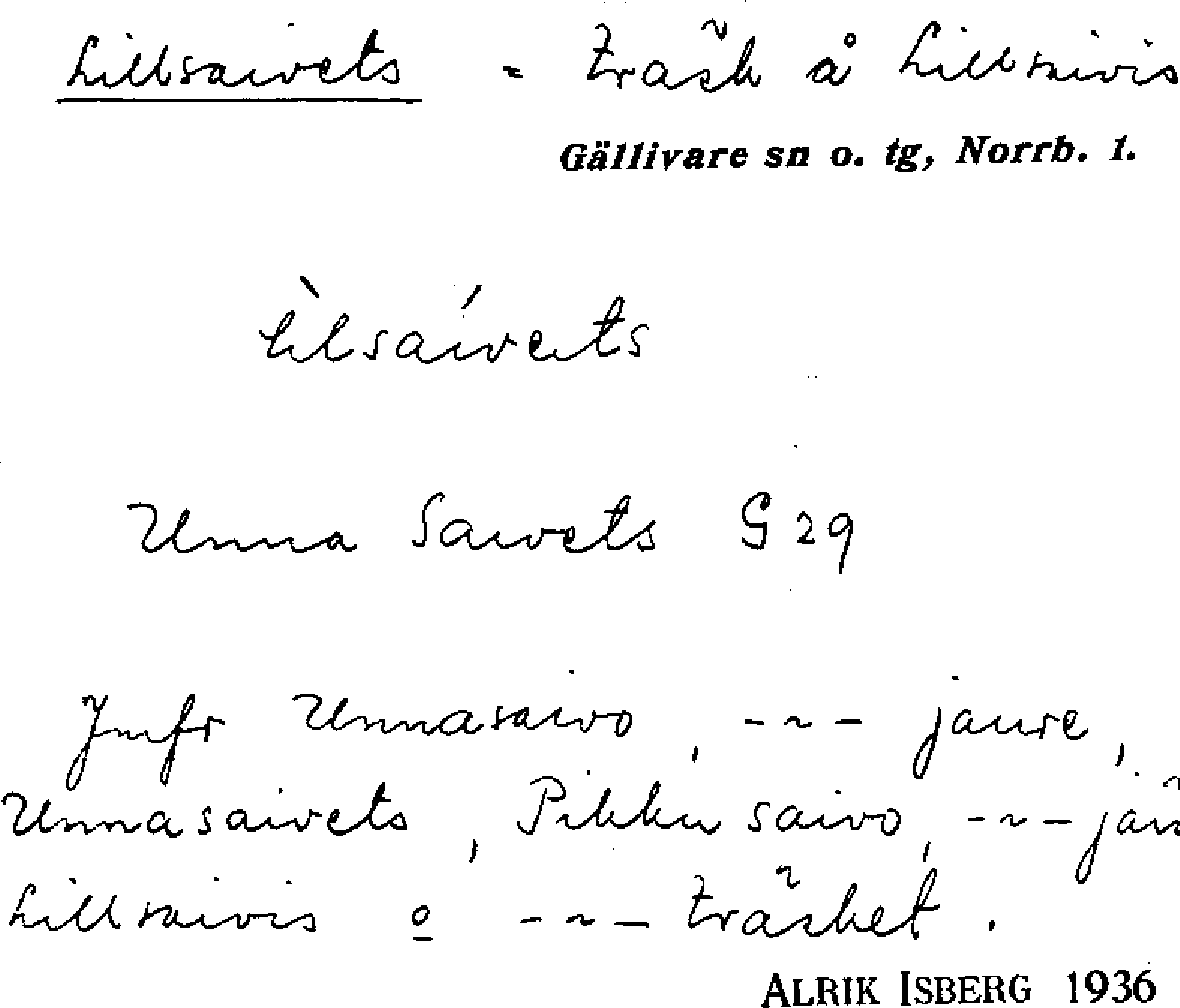 Lillsaivets = träsk å Lillsaivis
Gällivare sn o. tg, Norrb. l.
lìlsaívets
Unna Saivets G 29
Jmfr Unnasaivo, -~- jaure,
Unnasaivets, Pikku saivo, -~- jär
Lillsaivis o -~- träsket.
ALRIK ISBERG 1936